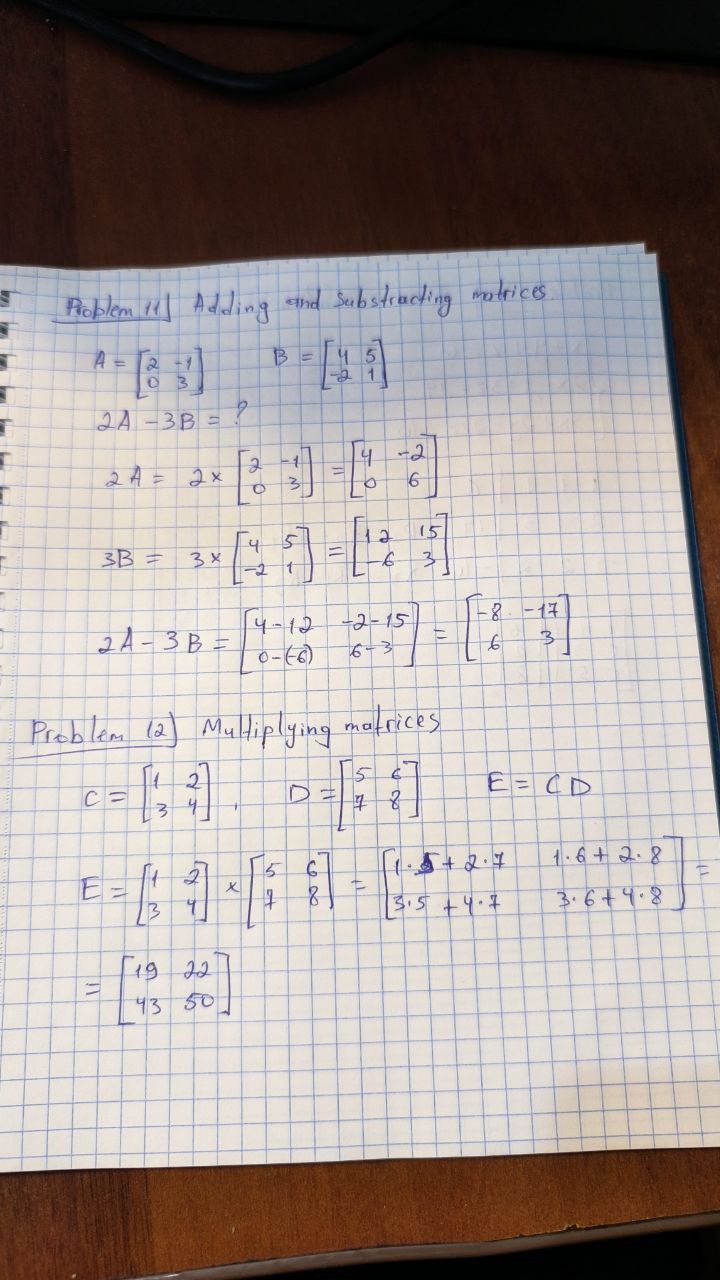 Problem 11) Adding and Substracting matrices
A = [2 -1; 0 3]   B = [4 5; -2 1]
2A - 3B = ?
2A = 2 × [2 -1; 0 3] = [4 -2; 0 6]
3B = 3 × [4 5; -2 1] = [12 15; -6 3]
2A - 3B = [4-12 -2-15; 0-(-6) 6-3] = [-8 -17; 6 3]
Problem 12) Multiplying matrices
C = [1 2; 3 4], D = [5 6; 7 8]   E = CD
E = [1 2; 3 4] × [5 6; 7 8] = [1·5+2·7 1·6+2·8; 3·5+4·7 3·6+4·8] =
= [19 22; 43 50]